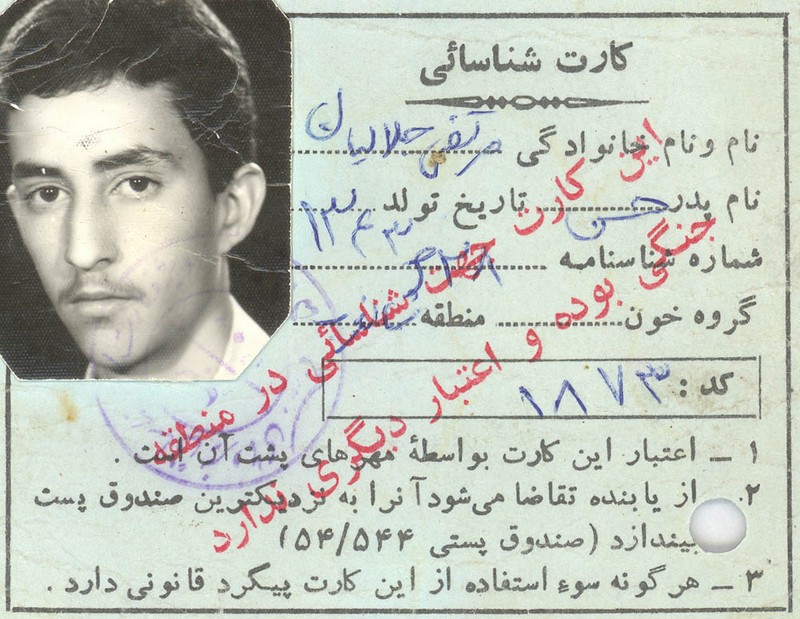 کارت شناسائی
نام و نام خانوادگی مرتضی جلالیان
نام پدر حسن تاریخ تولد ۱۳۴۳
شماره شناسنامه
گروه خون منطقه
کد : ۱۸۷۳
۱ - اعتبار این کارت بواسطهٔ مهرهای پشت آن است .
۲ - از یابنده تقاضا می‌شود آنرا به نزدیکترین صندوق پست
بیندازد (صندوق پستی ۵۴/۵۴۴)
۳ - هرگونه سوء استفاده از این کارت پیگرد قانونی دارد .
این کارت جهت شناسائی در منطقه
جنگی بوده و اعتبار دیگری ندارد